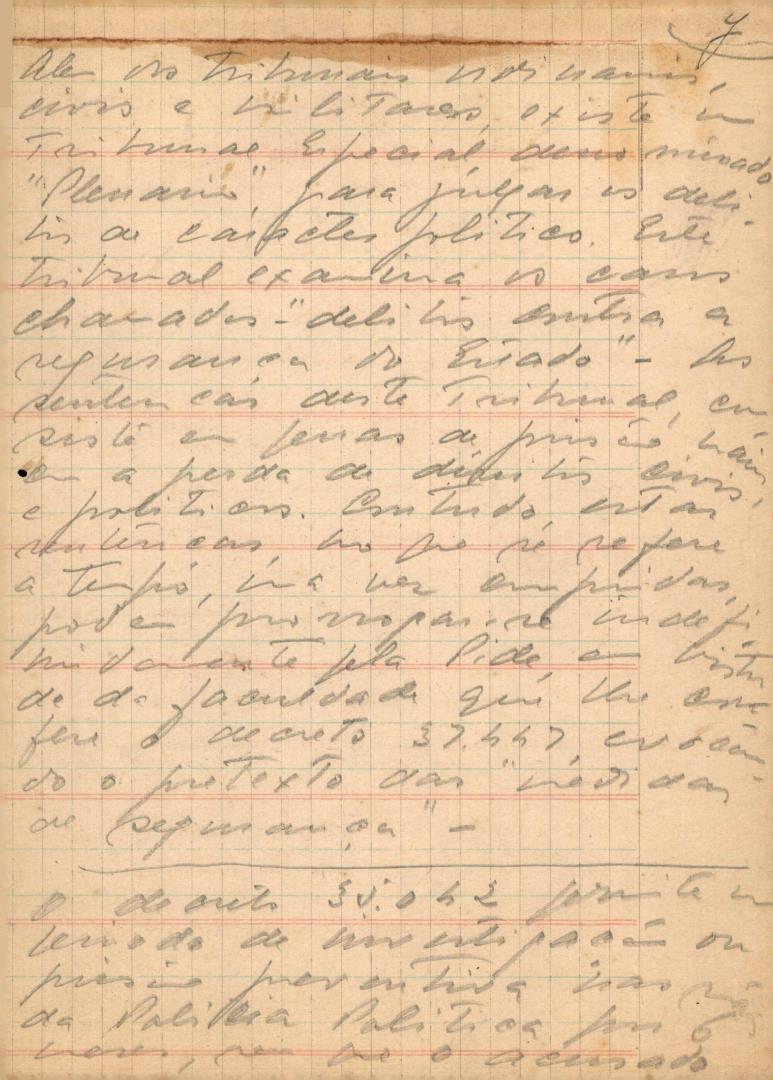 7
Alem dos tribunais ordinarios,
civis e militares, existe um
Tribunal Especial denominado
"Plenario", para julgar os deli-
tos de carácter político. Este
tribunal examina os casos
chamados - "delitos contra a
segurança do Estado" - As
sentenças deste Tribunal, con
siste em penas de prisão
a perda de direitos civis,
e politicos. Contudo estas
sentenças, no que se refere
a tempo, uma vez cumpridas,
podem prorrogar-se indefi
nidamente pela Pide, em virtu
de da faculdade que lhe con
fere o decreto 37.447 evocan
do o pretexto das "medidas
de segurança" -
O decreto 35.042 permite um
periodo de investigação ou
prisão preventiva nas mãos
da Policia Politica por 6
meses, sem que o acusado